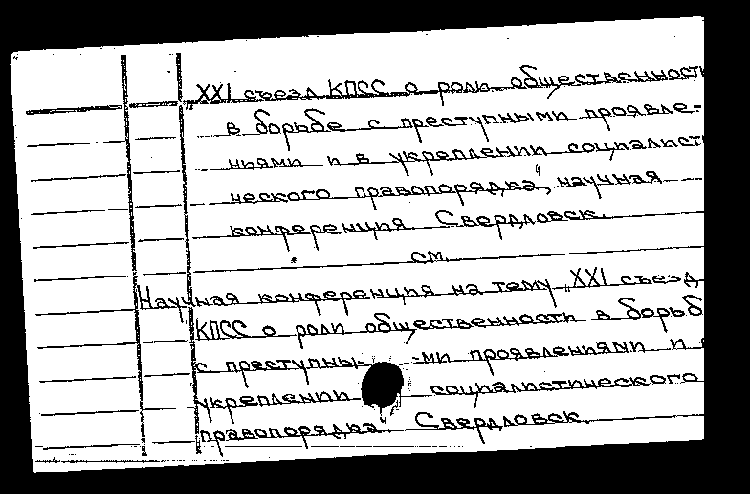 „XXI съезд КПСС о роли общественност
в борьбе с преступными проявле-
ниями и в укреплении социалист
ческого правопорядка", научная
конференция. Свердловск.
см.
Научная конференция на тему „XXI съезд
КПСС о роли общественности в борьб
с преступны- -ми проявлениями и в
укреплении социалистического
правопорядка". Свердловск.